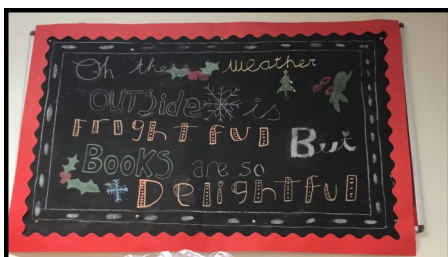 Oh the weather
OUTSide is
frightful
But
BOOKS are so
Delightful